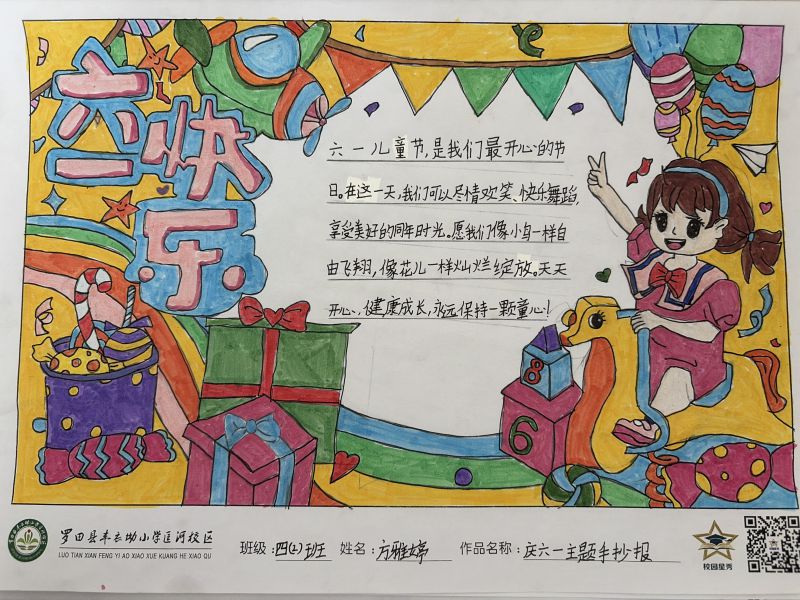 六一
快
乐
六一儿童节,是我们最开心的节
日。在这一天,我们可以尽情欢笑、快乐舞蹈,
享受美好的同年时光。愿我们像小鸟一样自
由飞翔,像花儿一样灿烂绽放。天天
开心、健康成长,永远保持一颗童心!
8
6
罗田县丰衣坳小学匡河校区
LUO TIAN XIAN FENG YI AO XIAO XUE KUANG HE XIAO QU
班级:四(2)班 姓名:方雅婷 作品名称:庆六一主题手抄报
校园星秀